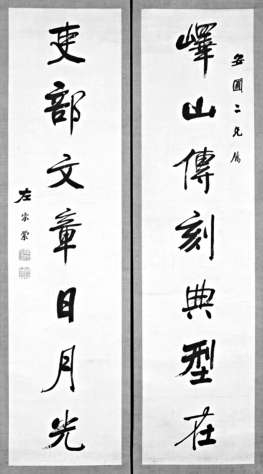 嶧山傳刻典型在
安圃二兄屬
吏部文章日月光
左宗棠